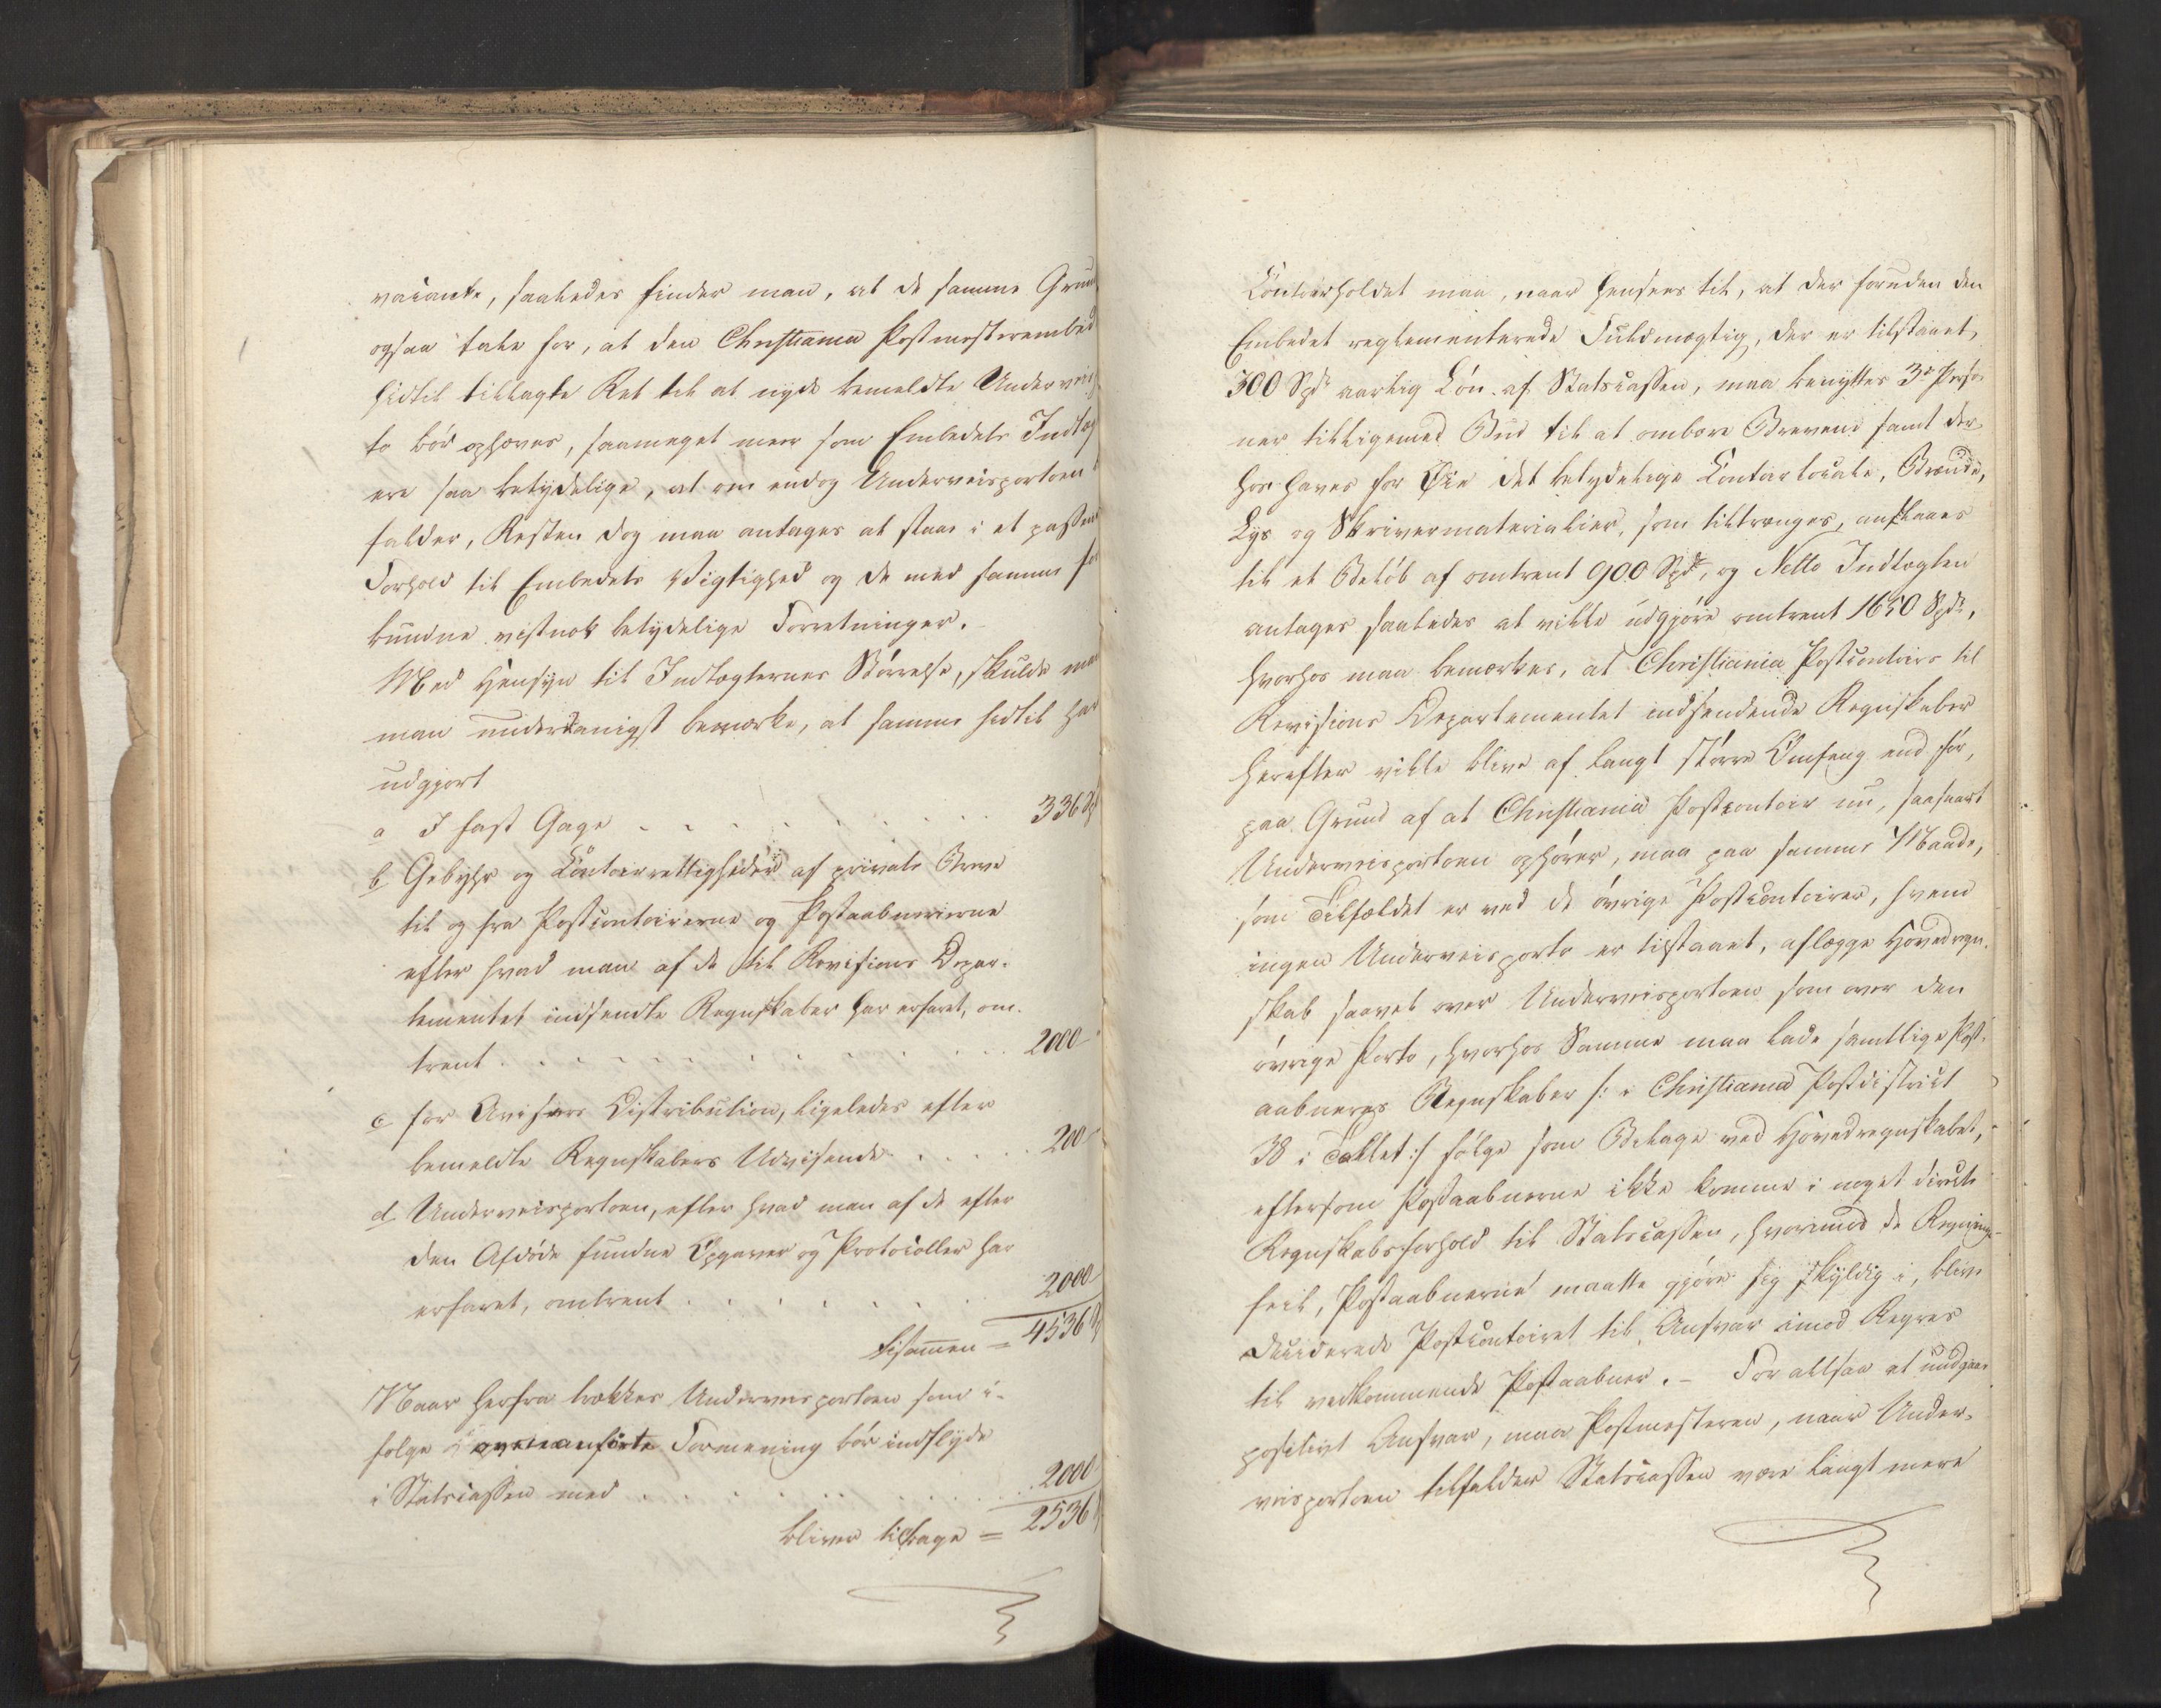 vacante, saaledes finder man, at de samme Grund
ogsaa tale for, at den Christiania Postmesterembed
hidtil tillagte Ret til at nyde bemeldte Underveis
to bör ophæves, saameget meer som Embedets Indtæg
ere saa betydelige, at om endog Underveisportoen
falder, Resten dog maa antages at staae i et passende
Forhold til Embedets Vigtighed og de med samme for
bundne vistnok betydelige Forretninger.
Med Hensyn til Indtægternes Störrelse, skulde man
man underdanigst bemærke, at samme hidtil har
udgjort
a I fast Gage . . . . . . . . . 336
b Gebyhr og Contoirrettigheder af private Breve
til og fra Postcontoirerne og Postaabnerierne
efter hvad man af de til Revisions Depar-
tementet indsendte Regnskaber har erfaret, om-
trent . . . . . . . . . . . . 2000
c for Avisers Distribution, ligeledes efter
bemeldte Regnskabers Udvisende . . . . . 200
d Underveisportoen, efter hvad man af de efter
den Afdöde fundne Opgaver og Protocoller har
erfaret, omtrent . . . . . . . 2000
tilsammen = 4536
Naar herfra trækkes Underveisportoen som i-
fölge ovenanförte Formening bör indflyde
i Statscassen med . . . . . . . . 2000
bliver tilbage = 2536
Contoirholdet maa, naar hensees til, at der foruden den
Embedet reglementerede Fuldmægtig, der er tilstaaet,
300 Spd aarlig Lön af Statscassen, maa benyttes 3de Perso-
ner tilligemed Bud til at ombære Brevene samt der-
hos haves for Öie det betydelige Contoirlocale, Brænde,
Lys og Skrivermaterialier, som tiltrænges, anslaaes
til et Belöb af omtrent 900 Spd, og Netto Indtægten
antages saaledes at ville udgjöre omtrent 1650 Spd,
hvorhos maa bemærkes, at Christiania Postcontoirs til
Revisions Departementet indsendende Regnskaber
herefter ville blive af langt större Omfang end för,
paa Grund af at Christiania Postcontoir nu, saasnart
Underveisportoen ophörer, maa paa samme Maade,
som Tilfældet er ved de övrige Postcontoirer, hvem
ingen Underveisporto er tilstaaet, aflægge Hovedregn-
skab saavel over Underveisportoen som over den
övrige Porto, hvorhos Samme maa lade samtlige Post-
aabneres Regnskaber /: i Christiania Postdistrict
38 i Tallet :/ fölge som Bilage ved Hovedregnskabet,
eftersom Postaabnerne ikke komme i noget directe
Regnskabsforhold til Statscassen, hvorimod de Regnings-
feil, Postaabnerne maatte gjöre sig skyldig i, blive
deciderede Postcontoiret til Ansvar imod Regres
til vedkommende Postaabner. – For altsaa at undgaae
positivt Ansvar, maa Postmesteren, naar Under-
veisportoen tilfalder Statscassen være langt mere